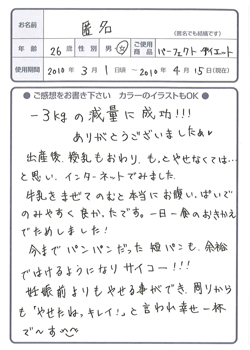 お名前 匿名
(匿名でも結構です)
年齢 26歳 性別 男・女 ご使用商品 パーフェクト ダイエット
使用期間 2010年3月1日頃〜2010年4月15日(現在)
● ご感想をお書き下さい カラーのイラストもOK ●
-3kgの減量に成功!!!
ありがとうございましたぁ♥
出産後、授乳もおわり、もっとやせなくては…
と思い、インターネットでみました。
牛乳をまぜてのむと本当にお腹いっぱいで
のみやすく良かったです。一日一食のおきかえ
でためしました!
今までパンパンだった短パンも、余裕
ではけるようになりサイコー!!!
妊娠前よりもやせる事ができ、周りから
も「やせたね、キレイ!」と言われ幸せ一杯
で〜す